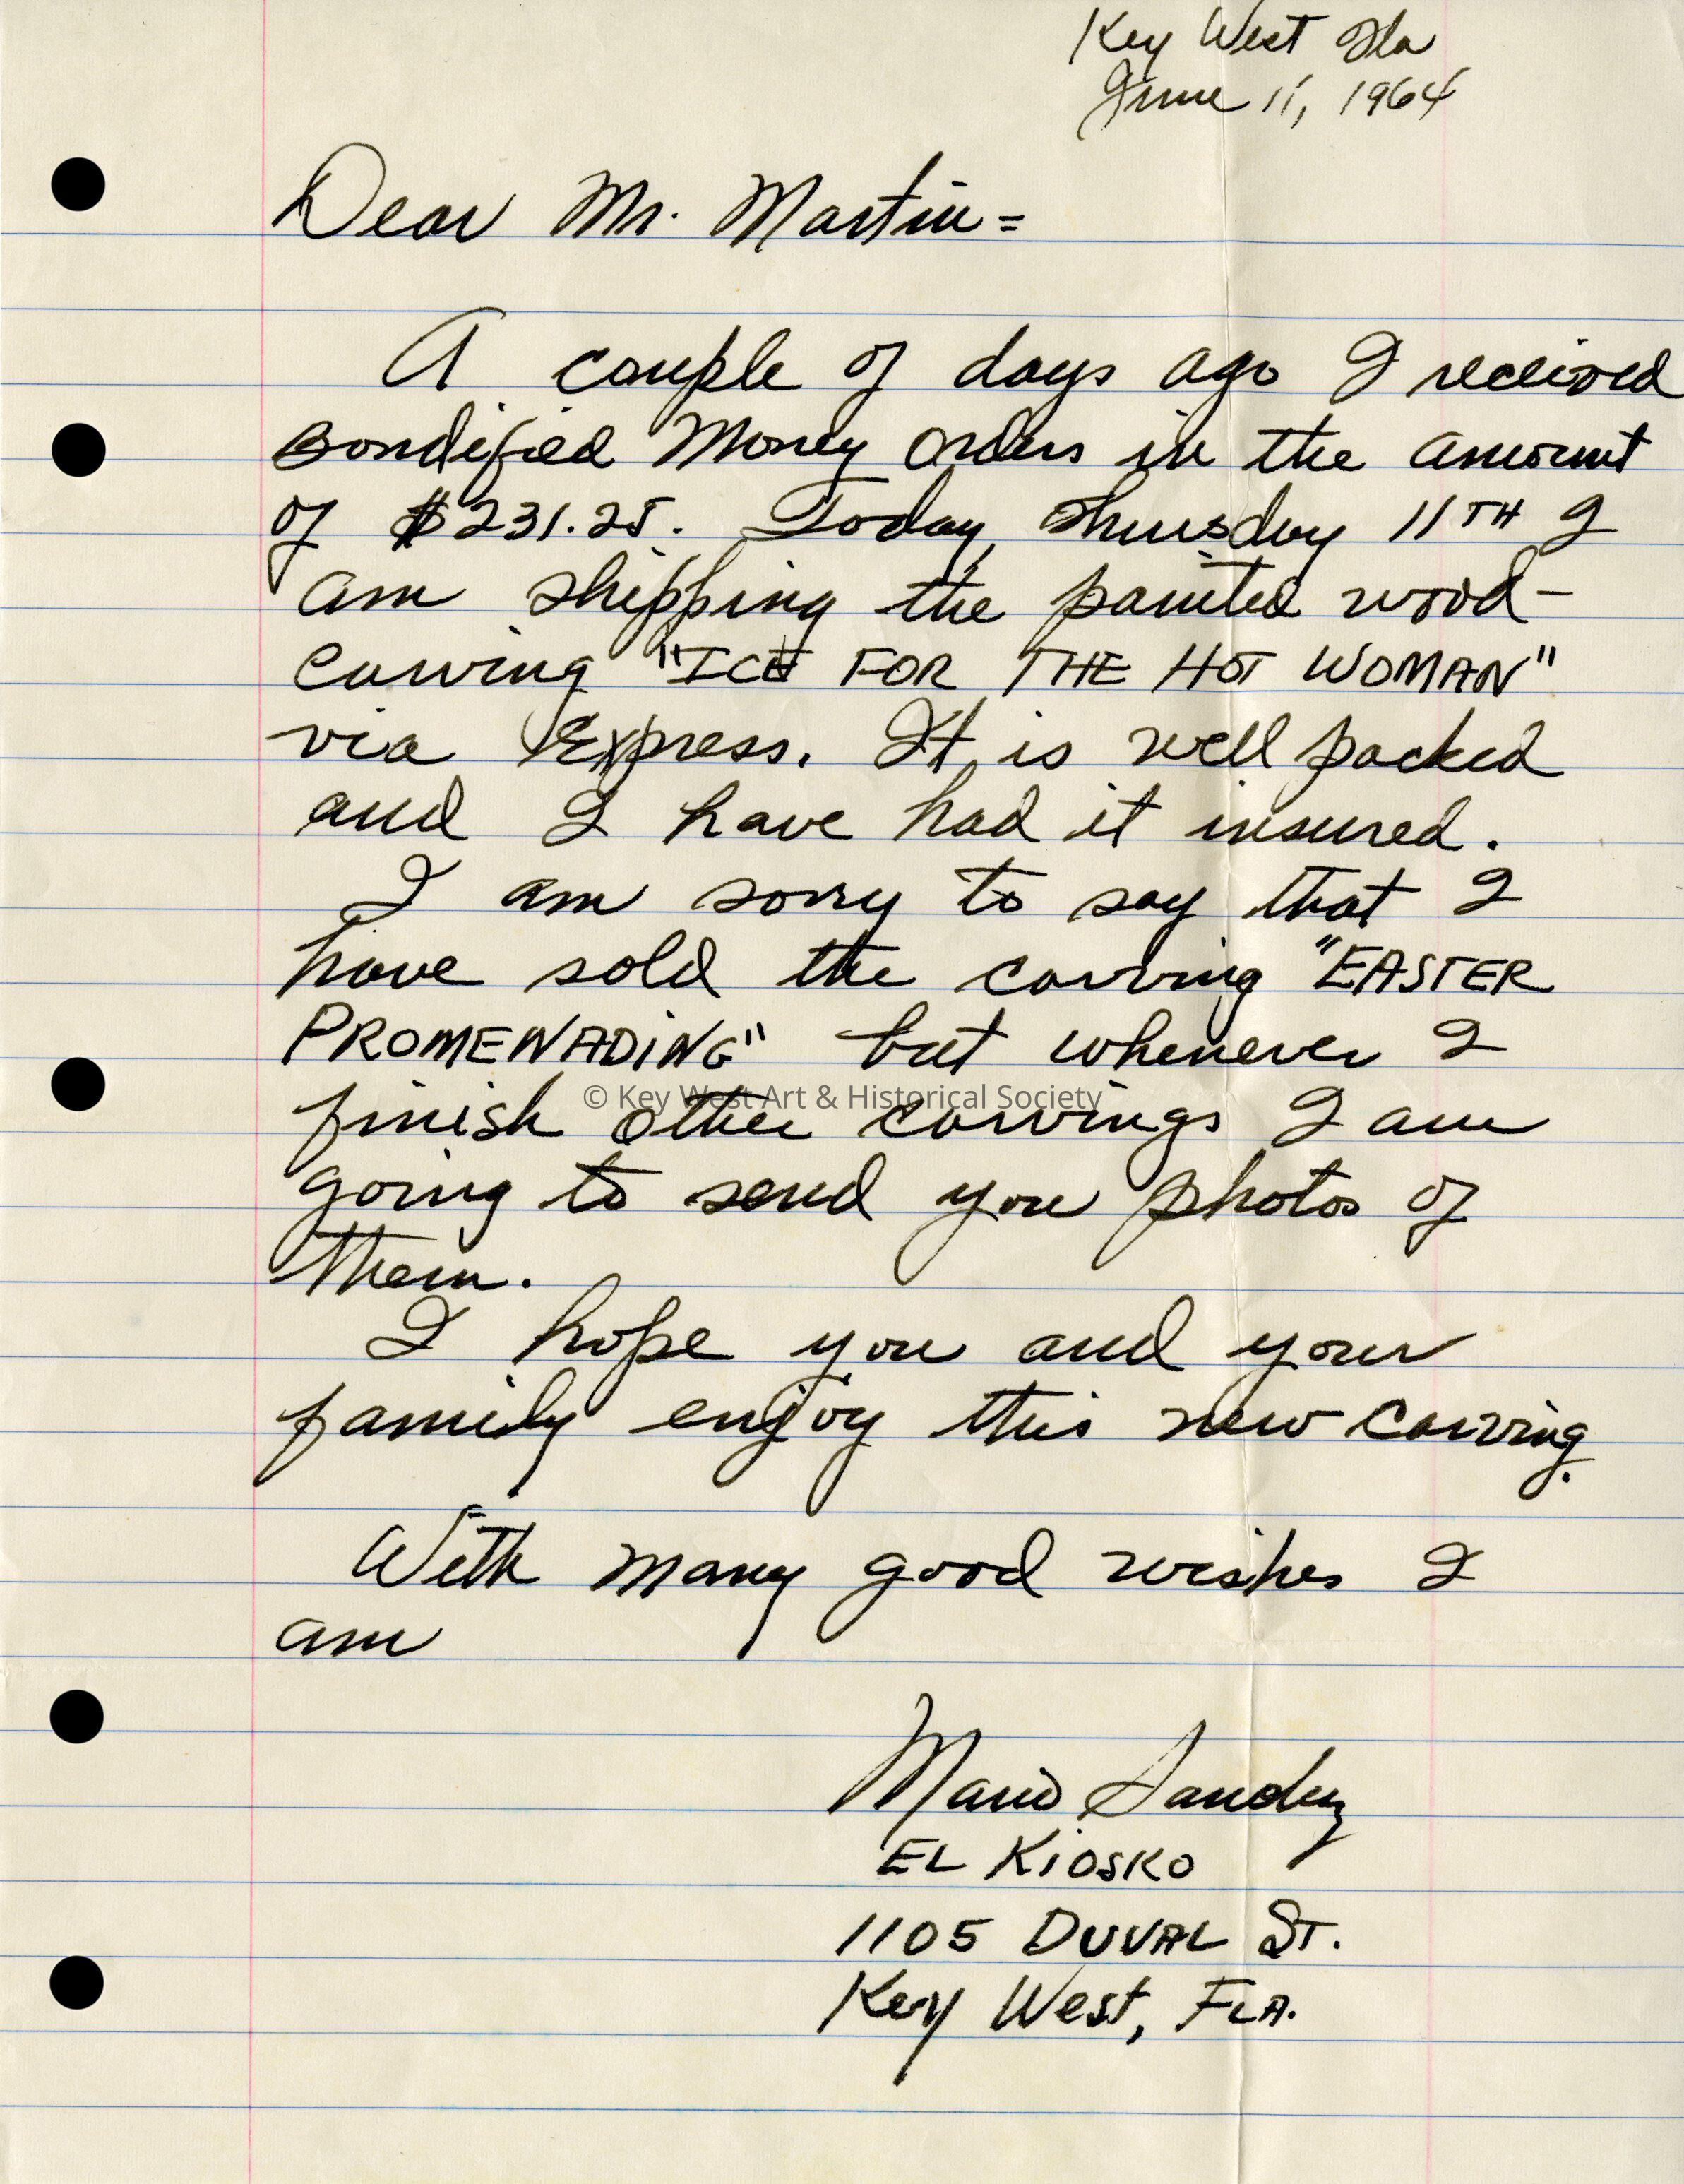 Key West Fla
June 11, 1964
Dear Mr. Martin=
A couple of days ago I received
Bondified Money Orders in the amount
of $231.25. Today, Thursday 11TH I
am shipping the painted wood-
carving "ICE FOR THE HOT WOMAN"
via Express. It is well packed
and I have had it insured.
I am sorry to say that I
have sold the carving "EASTER
PROMENADING" but whenever I
© Key West Art & Historical Society
finish other carvings I am
going to send you photos of
them.
I hope you and your
family enjoy this new carving.
With many good wishes I
am
Mario Sanchez
EL KiOSKO
1105 DUVAL ST.
Key West, FLA.